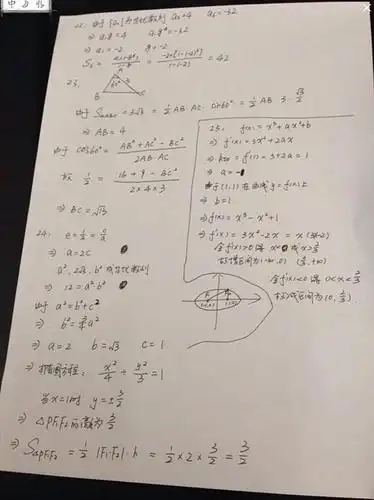 22. 由于{an}为等比数列 a2=4 a5=-32
⇒ a1q=4 a1q⁴=-32
⇒ a1=-2 q=-2
S6 = = 42
23.
A
60° 3
B C
由于 S△ABC=3√3 = 1/2 AB·AC·sin60° = 1/2 AB·3·√3/2
⇒ AB=4
由于 cos60° = (AB²+AC²-BC²)/(2AB·AC)
故 1/2 = (16+9-BC²)/(2×4×3)
⇒ BC=√13
24. e=1/2=c/a
⇒ a=2c
a², 2√3, b² 成等比数列
⇒ 12=a²·b²
由于 a²=b²+c²
⇒ b²=3/4a²
⇒ a=2 b=√3 c=1
⇒ 椭圆方程: x²/4 + y²/3 = 1
当x=1时 y=±3/2
⇒ △PF1F2的高为3/2
⇒ S△PF1F2 = 1/2 |F1·F2|·h = 1/2×2×3/2 = 3/2
25. f(x)=x³+ax²+b
⇒ f'(x)=3x²+2ax
⇒ f'(1)=3+2a=1
⇒ a=-1
由于(1,1)在曲线y=f(x)上
⇒ b=1
⇒ f(x)=x³-x²+1
⇒ f'(x)=3x²-2x = x(3x-2)
令f'(x)>0得 x<0或x>2/3
故增区间为(-∞,0) (2/3,+∞)
令f'(x)<0得 0<x<2/3
故减区间为(0,2/3)